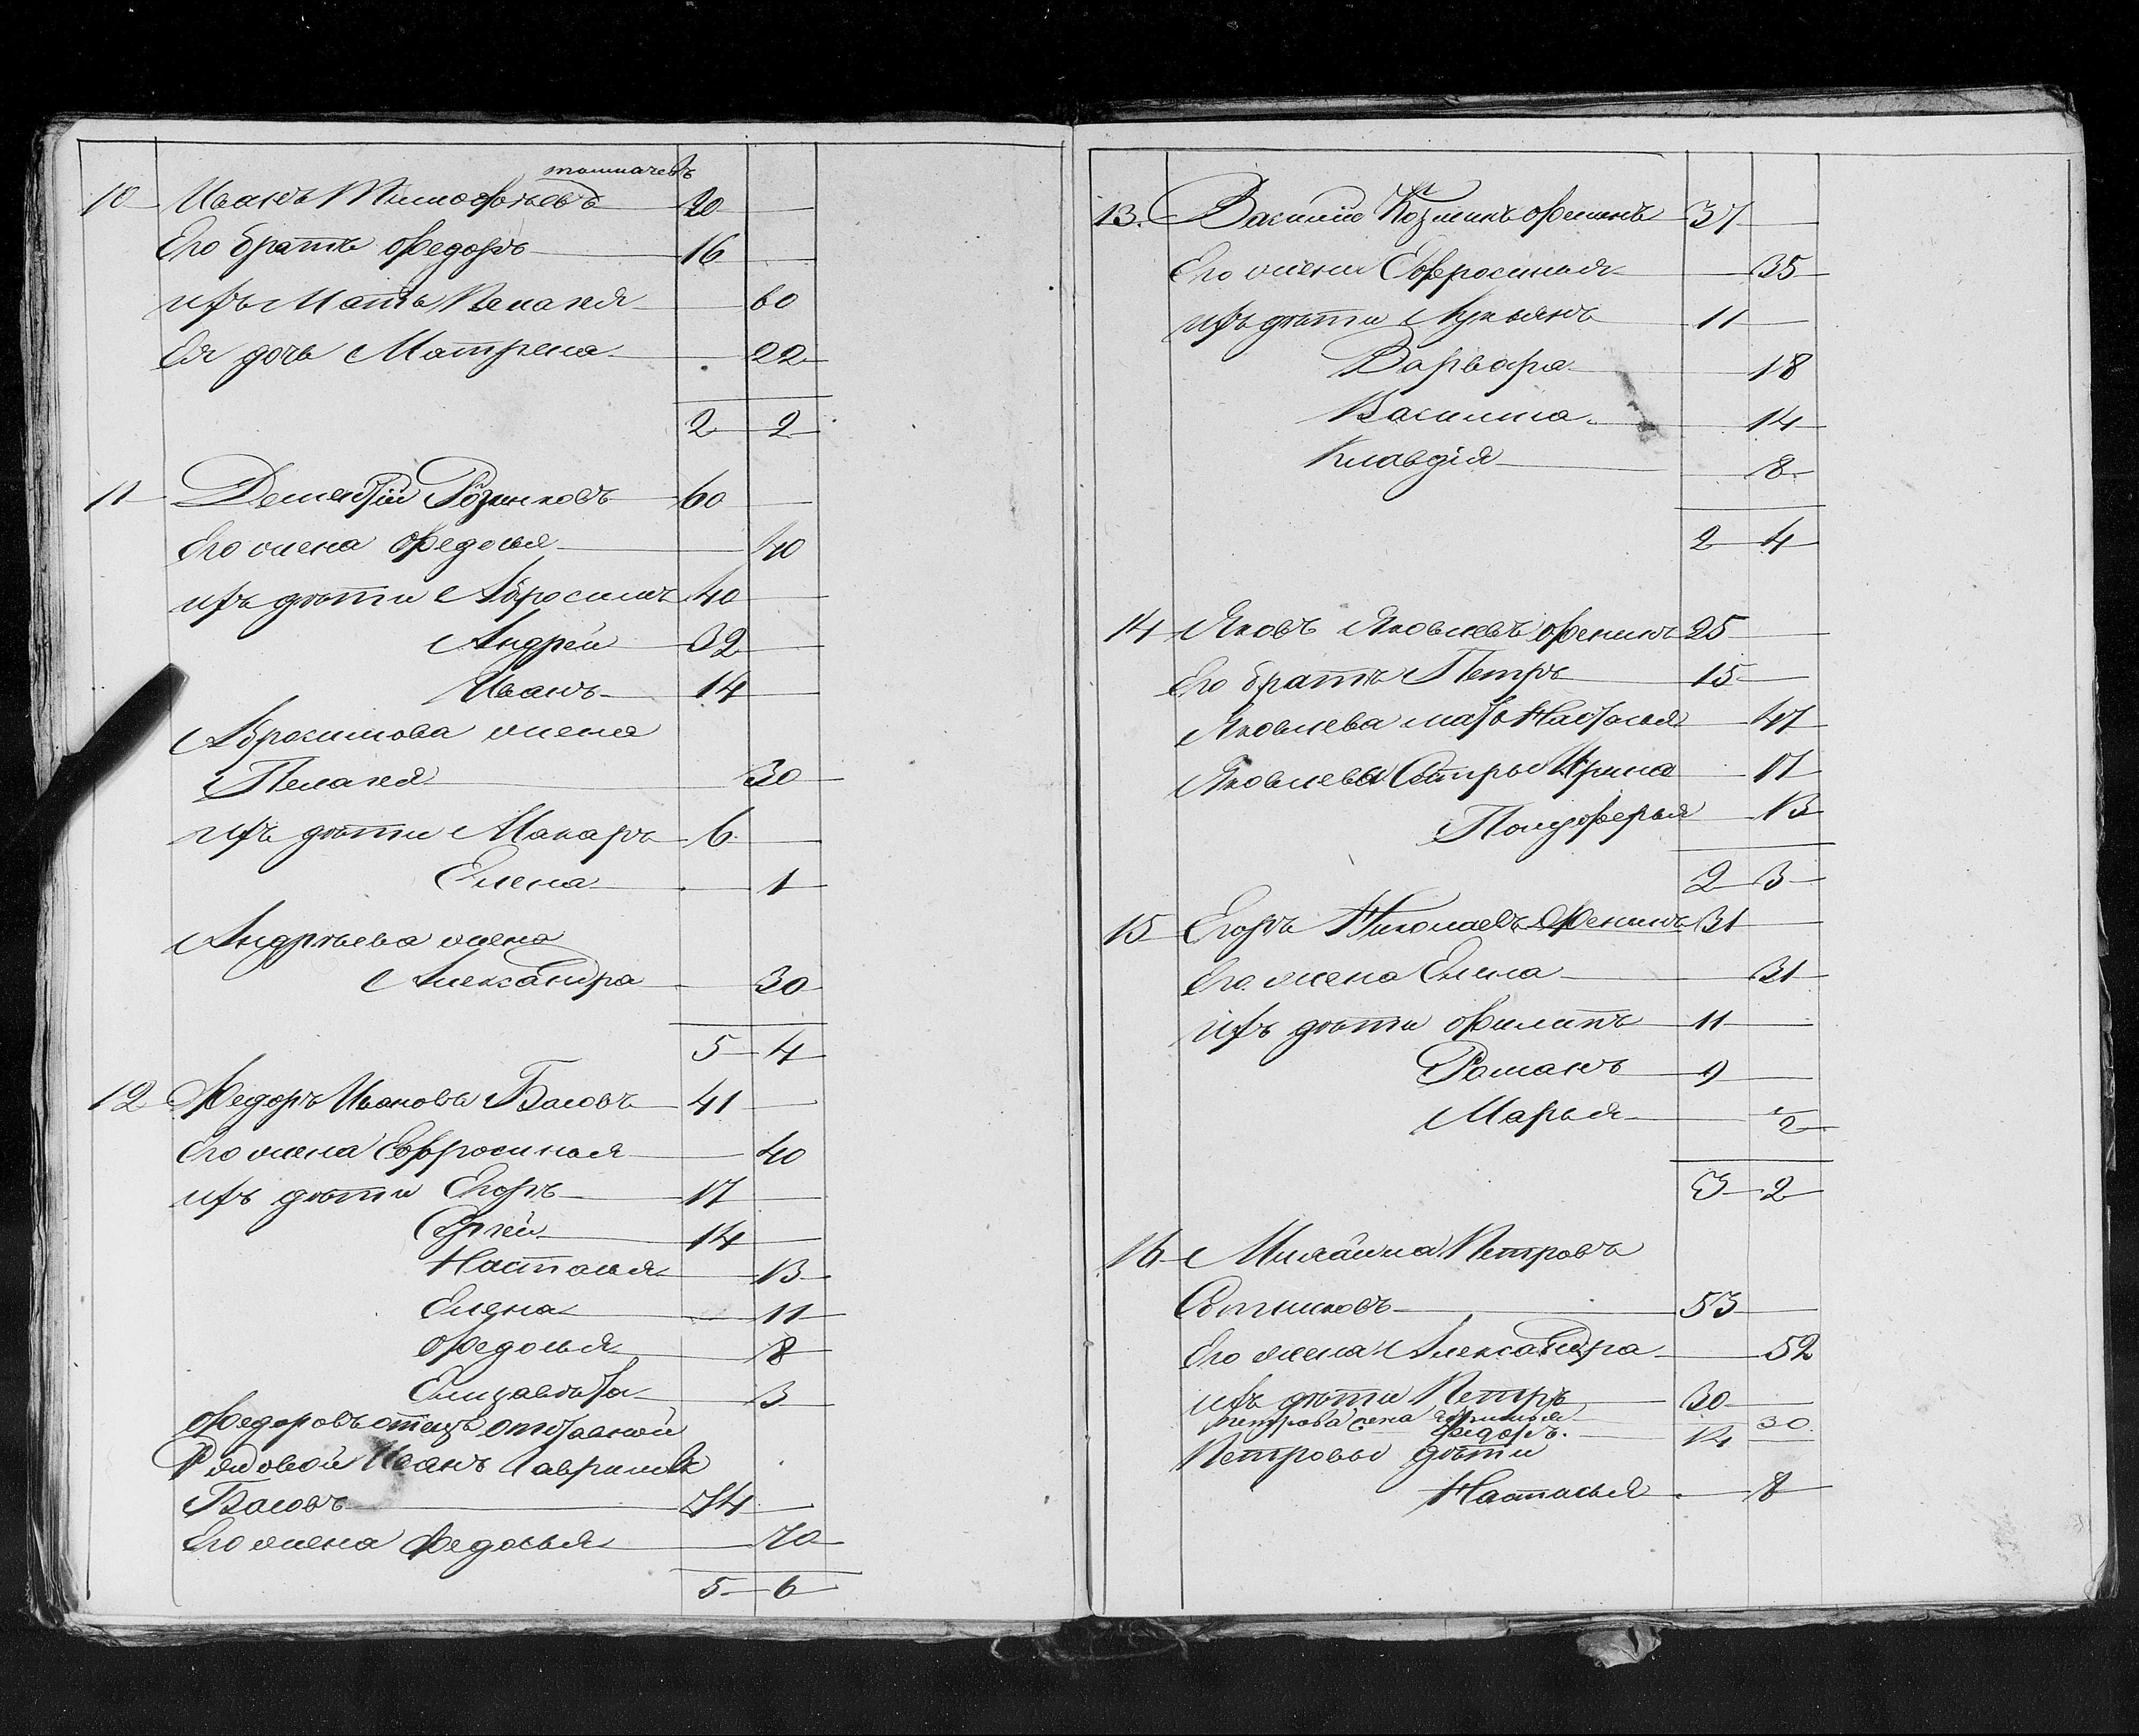 толмачевъ
10 Иванъ Тимофѣевъ 20
Его братъ Федоръ 16
ихъ Мать Пелагея 60
Ея дочь Матрена 22
2 2
11 Дементій Розинковъ 60
Его жена Федосья 40
ихъ дѣти Абросимъ 40
Андрей 32
Иванъ 14
Абросимова жена
Пелагея 30
ихъ дѣти Макаръ 6
Елена 1
Андрѣева жена
Александра 30
5 4
12 Федоръ Ивановъ Басовъ 41
Его жена Евфросинья 40
ихъ дѣти Егоръ 17
Сергей 14
Настасья 13
Елена 11
Федосья 8
Елизавѣта 3
Федоровъ отецъ отставной
Рядовой Иванъ Гавриловъ
Басовъ 74
Его жена Федосья 70
5 6
13. Василій Козминъ Фенинъ 37
Его жена Евфросинья 35
ихъ дѣти Лукьянъ 11
Варвара 18
Василиса 14
Клавдія 8
2 4
14 Яковъ Яковлевъ Фенинъ 25
Его братъ Петръ 15
Яковлева мать Настасья 47
Яковлевы Сестры Ирина 17
Полуферья 13
2 3
15 Егоръ Николаевъ Фенинъ 31
Его жена Елена 31
ихъ дѣти Филипъ 11
Романъ 9
Марья 1/2
3 2
16 Михайла Петровъ
Сотниковъ 53
Его жена Александра 52
ихъ дѣти Петръ 30
петрова жена 30
Федоръ. 14
Петровы дѣти
Настасья 8